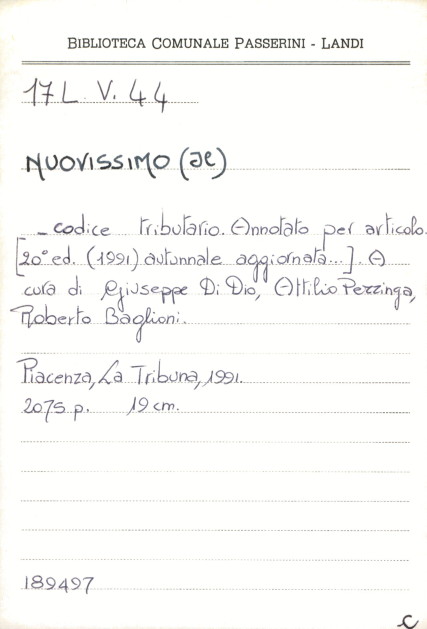 BIBLIOTECA COMUNALE PASSERINI - LANDI
17 L. V. 44
NUOVISSIMO (Je)
_ codice tributario. Annotato per articolo.
[20° ed. (1991) autunnale aggiornata...]. A
cura di Giuseppe Di Dio, Attilio Pezzinga,
Roberto Baglioni.
Piacenza, La Tribuna, 1991.
2075 p. 19 cm.
189497
C